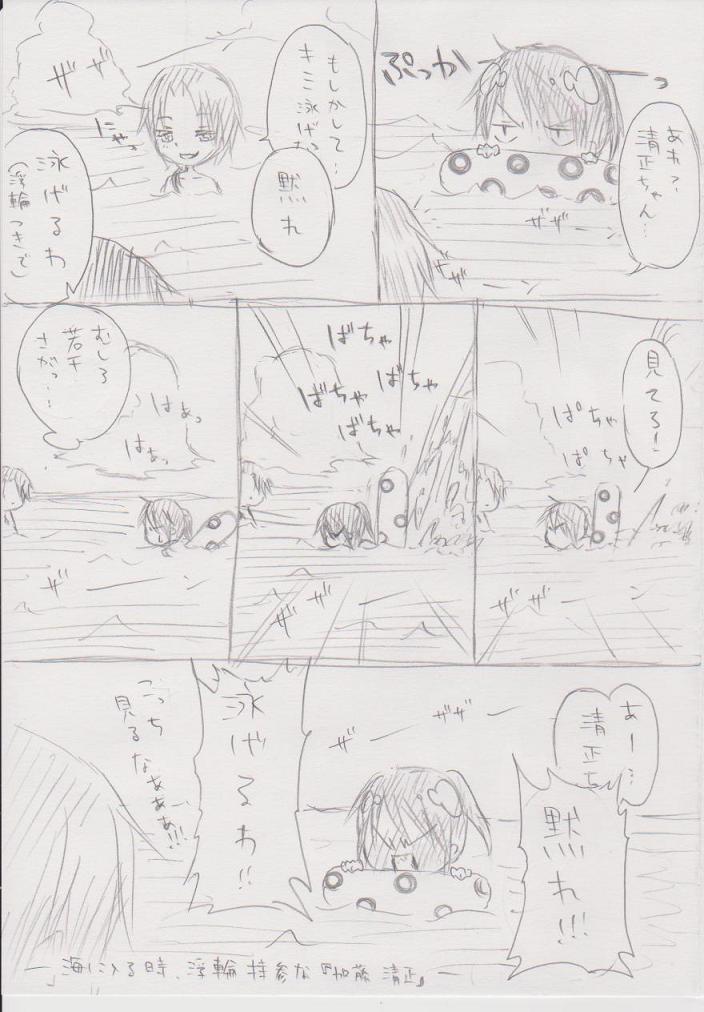 あれ?
清正ちゃん…
ぷっか
っ
ザザ
ザザーーン
もしかして…
キミ泳げな
黙れ
ザザ
にやっ
泳げるわ
(浮輪つきで)
見てろ!
ぱちゃ
ぱちゃ
ザザーーン
ばちゃ
ばちゃ
ばちゃ
ばちゃ
ザザ
むしろ
若干
さがっ…
はぁっ
はぁっ
ザーーン
あー…
清正ち
黙れ!!!
ザザー
ザー
泳げるわ!!
こっち
見るなぁぁぁ!!!
―「海に入る時、浮輪持参な『加藤 清正』―